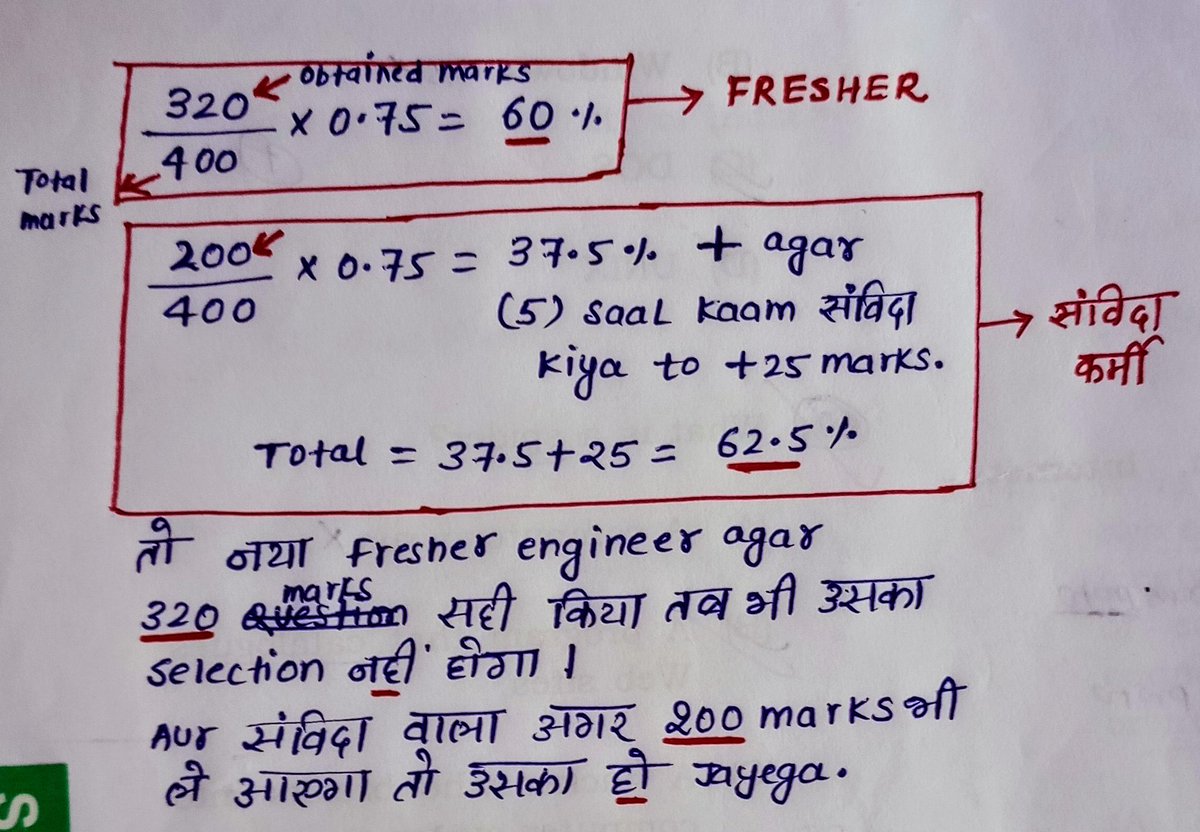 obtained marks
320/400 × 0.75 = 60 % → FRESHER
Total
marks
200/400 × 0.75 = 37.5 % + agar
(5) saal kaam संविदा
kiya to +25 marks.
→ संविदा
कर्मी
Total = 37.5+25 = 62.5 %
तो नया Fresher engineer agar
marks
320 question सही किया तब भी उसका
selection नहीं होगा ।
Aur संविदा वाला अगर 200 marks भी
ले आएगा तो उसका हो Jayega.
S